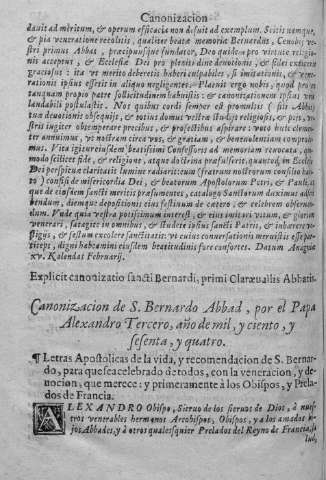 Canonizacion
dauit ad meritum, & operum efficacia non defuit ad exemplum. Scitis namque,
& pia veneratione recolitis, qualiter beatæ memoriæ Bernardus, Cenobij ve-
stri primus Abbas, præcipuusque fundator, Deo quidem pro virtute religio-
nis acceptus, & Ecclesiæ Dei pro plenis diue deuotionis, & fidei extiterit
gratiosus: ita vt merito debeatis haberi culpabiles, si imitationis, & vene-
rationis ipsius esset in aliquo negligentes. Placuit ergo nobis, quod pro ip
tanquam proprio patre sollicitudinem habuistis: & canonizationem ipsius tam
laudabili postulastis. Nos quibus cordi semper est promultis (fili Abbas)
tua deuotionis obsequijs, & totius domus vestra studijs religiosis, & pijs, ve-
stris iugiter obtemperare precibus, & profectibus aspirare: voto huic clemen-
ter annuimus, vt nostram circa vos, & gratiam, & beneuolentiam compro-
mus. Vita igitur eiusdem beatissimi Confessoris ad memoriam reuocata, quo-
modo scilicet fide, & religione, atque doctrina præfulserit, quantoq́ in Ecclesia
Dei perspicuæ claritatis lumine radiarit: cum (fratrum nostrorum consilio habi-
to) confisi de misericordia Dei, & beatorum Apostolorum Petri, & Pauli, at
que de eiusdem sancti meritis præsumentes, catalogo Sanctorum duximus adhi-
bendum, diemque depositionis eius festiuum de cætero, & celebrem obserue-
dum. Vnde quia vestra potissimum interest, & eius imitari vitam, & gloriam
venerari, satagite in omnibus, & studete ipsius sancti Patris, & inhærere ve-
stigijs, & festum excolere sanctitatis: vt cuius conversationis meruistis esse par-
ticipes, digni habeamini eiusdem beatitudinis fore consortes. Datum Anagniæ
xv. Kalendas Februarij.
Explicit canonizatio sancti Bernardi, primi Claræuallis Abbatis.
Canonizacion de S. Bernardo Abbad, por el Papa
Alexandro Tercero, año de mil, y ciento, y
sesenta, y quatro.
¶ Letras Apostolicas de la vida, y recomendacion de S. Bernar-
do, para que sea celebrado de todos, con la veneracion, y de-
uocion, que merece: y primeramente à los Obispos, y Prela-
dos de Francia.
ALEXANDRO Obispo, Sieruo de los sieruos de Dios, à nues-
tros venerables hermanos Arçobispos, Obispos, y a los amados hi-
jos Abbades, y à otros qualesquier Prelados del Reyno de Francia, sa-
lud,